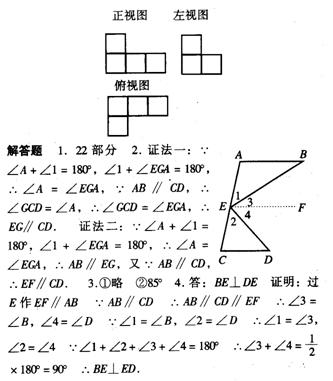 正视图 左视图
俯视图
解答题 1. 22 部分 2. 证法一：∵
∠A + ∠1 = 180°, ∠1 + ∠EGA = 180°,
∴ ∠A = ∠EGA, ∵ AB ∥ CD, ∴
∠GCD = ∠A, ∴ ∠GCD = ∠EGA, ∴
EG∥ CD. 证法二：∵ ∠A + ∠1 =
180°, ∠1 + ∠EGA = 180°, ∴ ∠A =
∠EGA, ∴ AB ∥ EG, 又∵ AB ∥ CD,
∴ EF∥ CD. 3.①略 ②85° 4. 答：BE⊥DE 证明：过
E 作 EF∥AB ∵ AB∥CD ∴ AB∥CD∥EF ∴ ∠3 =
∠B, ∠4 = ∠D ∵ ∠1 = ∠B, ∠2 = ∠D ∴ ∠1 = ∠3,
∠2 = ∠4 ∵ ∠1 + ∠2 + ∠3 + ∠4 = 180° ∴ ∠3 + ∠4 = 1/2
× 180° = 90° ∴ BE⊥ED.
A B
1 3
E F
2 4
C D